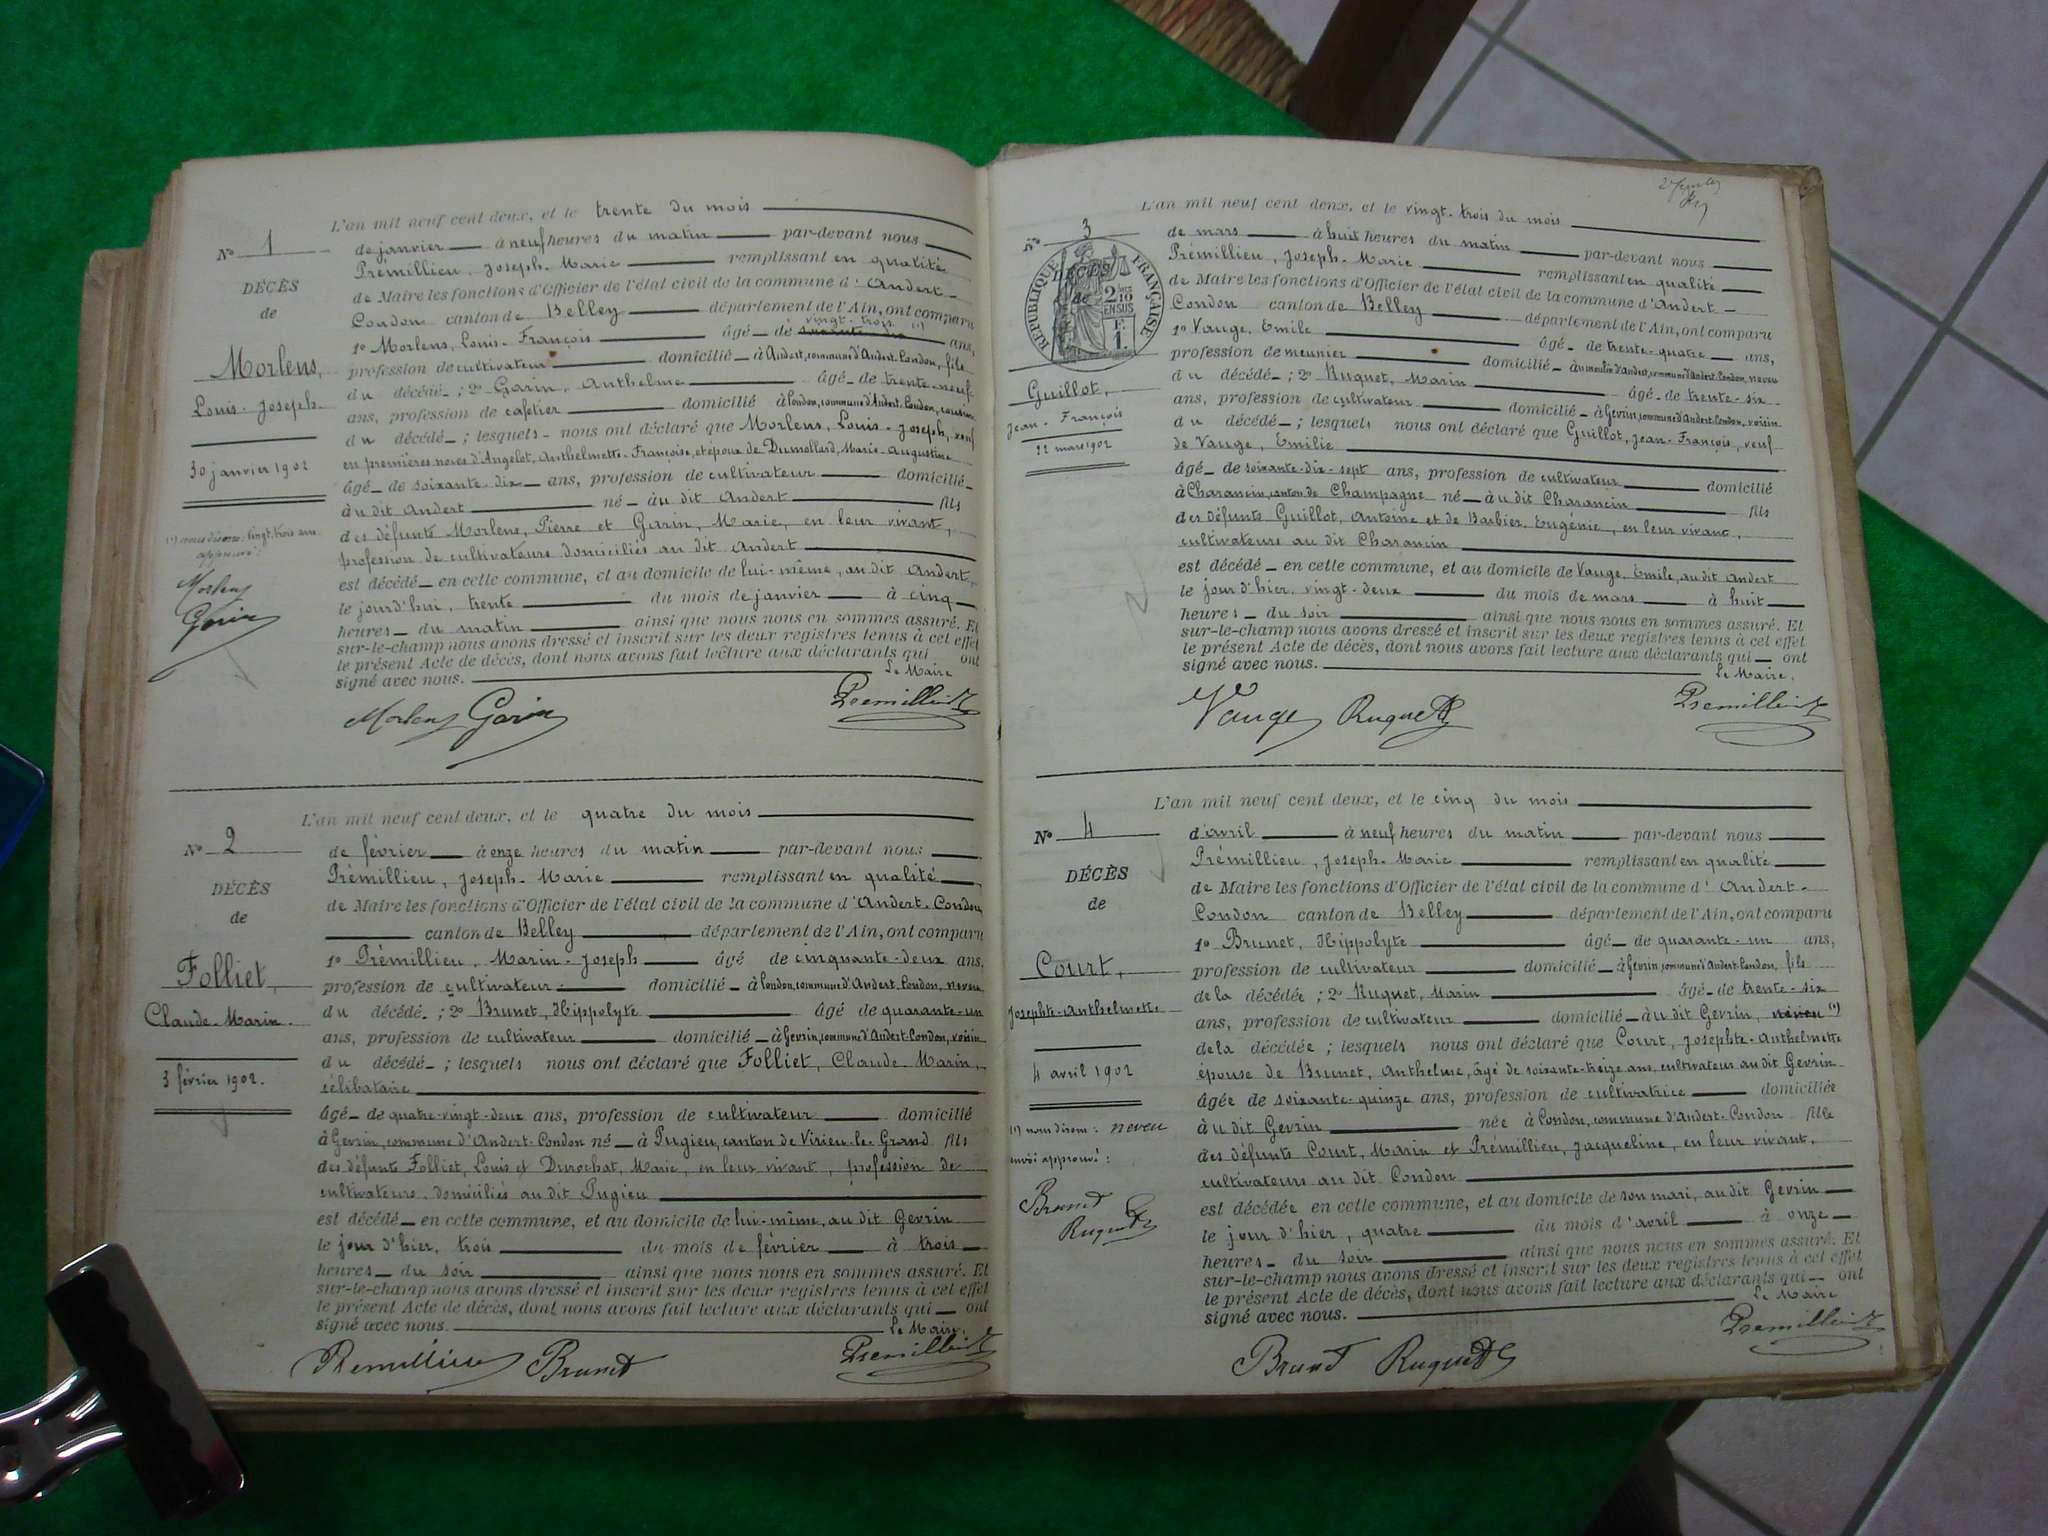 L'an mil neuf cent deux, et le trente du mois
No 1
de janvier à neuf heures du matin par-devant nous
Prémillieu, Joseph-Marie remplissant en qualité
DÉCÈS
de Maire les fonctions d'Officier de l'état civil de la commune d'Andert-
de
Condon canton de Belley département de l'Ain, ont comparu
vingt-trois (1)
1o Morlens, Louis-François âgé de soixante-dix ans,
Morlens,
profession de cultivateur domicilié à Andert, commune d'Andert-Condon, fils
du décédé ; 2o Garin, Anthelme âgé de trente-neuf
Louis-Joseph
ans, profession de cafetier domicilié à Condon, commune d'Andert-Condon, cousin
du décédé ; lesquels nous ont déclaré que Morlens, Louis-Joseph, veuf
30 janvier 1902
en premières noces d'Angelot, Anthelmette-Françoise, et époux de Dumollard, Marie-Augustine
âgé de soixante-dix ans, profession de cultivateur domicilié
au dit Andert né au dit Andert fils
(1) nous disons: vingt-trois ans
approuvé:
des défunts Morlens, Pierre et Garin, Marie, en leur vivant,
profession de cultivateurs domiciliés au dit Andert
Morlens
est décédé en cette commune, et au domicile de lui-même, au dit Andert,
Garin
le jourd'hui, trente du mois de janvier à cinq
heures du matin ainsi que nous nous en sommes assuré. Et
sur-le-champ nous avons dressé et inscrit sur les deux registres tenus à cet effet
le présent Acte de décès, dont nous avons fait lecture aux déclarants qui ont
signé avec nous. Le Maire
Morlens Garin Premillieu
L'an mil neuf cent deux, et le quatre du mois
No 2
de février à onze heures du matin par-devant nous
Prémillieu, Joseph-Marie remplissant en qualité
DÉCÈS
de Maire les fonctions d'Officier de l'état civil de la commune d'Andert-Condon
de
canton de Belley département de l'Ain, ont comparu
1o Prémillieu, Marin-Joseph âgé de cinquante-deux ans,
Folliet,
profession de cultivateur domicilié à Condon, commune d'Andert-Condon, neveu
Claude-Marin
du décédé ; 2o Brunet, Hippolyte âgé de quarante-un
ans, profession de cultivateur domicilié à Gevrin, commune d'Andert-Condon, voisin
du décédé ; lesquels nous ont déclaré que Folliet, Claude-Marin,
3 février 1902.
célibataire
âgé de quatre-vingt-deux ans, profession de cultivateur domicilié
à Gevrin, commune d'Andert-Condon né à Pugieu, canton de Virieu-le-Grand fils
des défunts Folliet, Louis et Durochat, Marie, en leur vivant, profession de
cultivateurs, domiciliés au dit Pugieu
est décédé en cette commune, et au domicile de lui-même, au dit Gevrin
le jour d'hier, trois du mois de février à trois
heures du soir ainsi que nous nous en sommes assuré. Et
sur-le-champ nous avons dressé et inscrit sur les deux registres tenus à cet effet
le présent Acte de décès, dont nous avons fait lecture aux déclarants qui ont
signé avec nous. Le Maire,
Premillieu Brunet Premillieu
L'an mil neuf cent deux, et le vingt-trois du mois
No 3
de mars à huit heures du matin par-devant nous
Prémillieu, Joseph-Marie remplissant en qualité
DÉCÈS
de
RÉPUBLIQUE FRANÇAISE
2/10 EN SUS
F. 1.
de Maire les fonctions d'Officier de l'état civil de la commune d'Andert-
Condon canton de Belley département de l'Ain, ont comparu
1o Vauge, Emile âgé de trente-quatre ans,
profession de meunier domicilié au moulin d'Andert, commune d'Andert-Condon, neveu
Guillot,
du décédé ; 2o Ruguet, Marin âgé de trente-six
Jean-François
ans, profession de cultivateur domicilié à Gevrin, commune d'Andert-Condon, voisin
du décédé ; lesquels nous ont déclaré que Guillot, Jean-François, veuf
22 mars 1902
de Vauge, Emilie
âgé de soixante-dix-sept ans, profession de cultivateur domicilié
à Charancin, canton de Champagne né au dit Charancin fils
des défunts Guillot, Antoine et de Barbier, Eugénie, en leur vivant,
cultivateurs au dit Charancin
est décédé en cette commune, et au domicile de Vauge, Emile, au dit Andert
le jour d'hier, vingt-deux du mois de mars à huit
heures du soir ainsi que nous nous en sommes assuré. Et
sur-le-champ nous avons dressé et inscrit sur les deux registres tenus à cet effet
le présent Acte de décès, dont nous avons fait lecture aux déclarants qui ont
signé avec nous. Le Maire,
Vauge Ruguet Premillieu
L'an mil neuf cent deux, et le cinq du mois
No 4
d'avril à neuf heures du matin par-devant nous
Prémillieu, Joseph-Marie remplissant en qualité
DÉCÈS
de Maire les fonctions d'Officier de l'état civil de la commune d'Andert-
de
Condon canton de Belley département de l'Ain, ont comparu
1o Brunet, Hippolyte âgé de quarante-un ans,
Court,
profession de cultivateur domicilié à Gevrin, commune d'Andert-Condon, fils
de la décédée ; 2o Ruguet, Marin âgé de trente-six
Josephte-Anthelmette
ans, profession de cultivateur domicilié au dit Gevrin, (1)
de la décédée ; lesquels nous ont déclaré que Court, Josephte-Anthelmette
4 avril 1902
épouse de Brunet, Anthelme, âgé de soixante-treize ans, cultivateur au dit Gevrin
âgée de soixante-quinze ans, profession de cultivatrice domiciliée
(1) nous disons: neveu
au dit Gevrin née à Condon, commune d'Andert-Condon fille
des défunts Court, Marin et Prémillieu, Jacqueline, en leur vivant,
approuvé:
cultivateurs au dit Condon
Brunet
Ruguet
est décédée en cette commune, et au domicile de son mari, au dit Gevrin
le jour d'hier, quatre du mois d'avril à onze
heures du soir ainsi que nous nous en sommes assuré. Et
sur-le-champ nous avons dressé et inscrit sur les deux registres tenus à cet effet
le présent Acte de décès, dont nous avons fait lecture aux déclarants qui ont
signé avec nous. Le Maire
Brunet Ruguet Premillieu